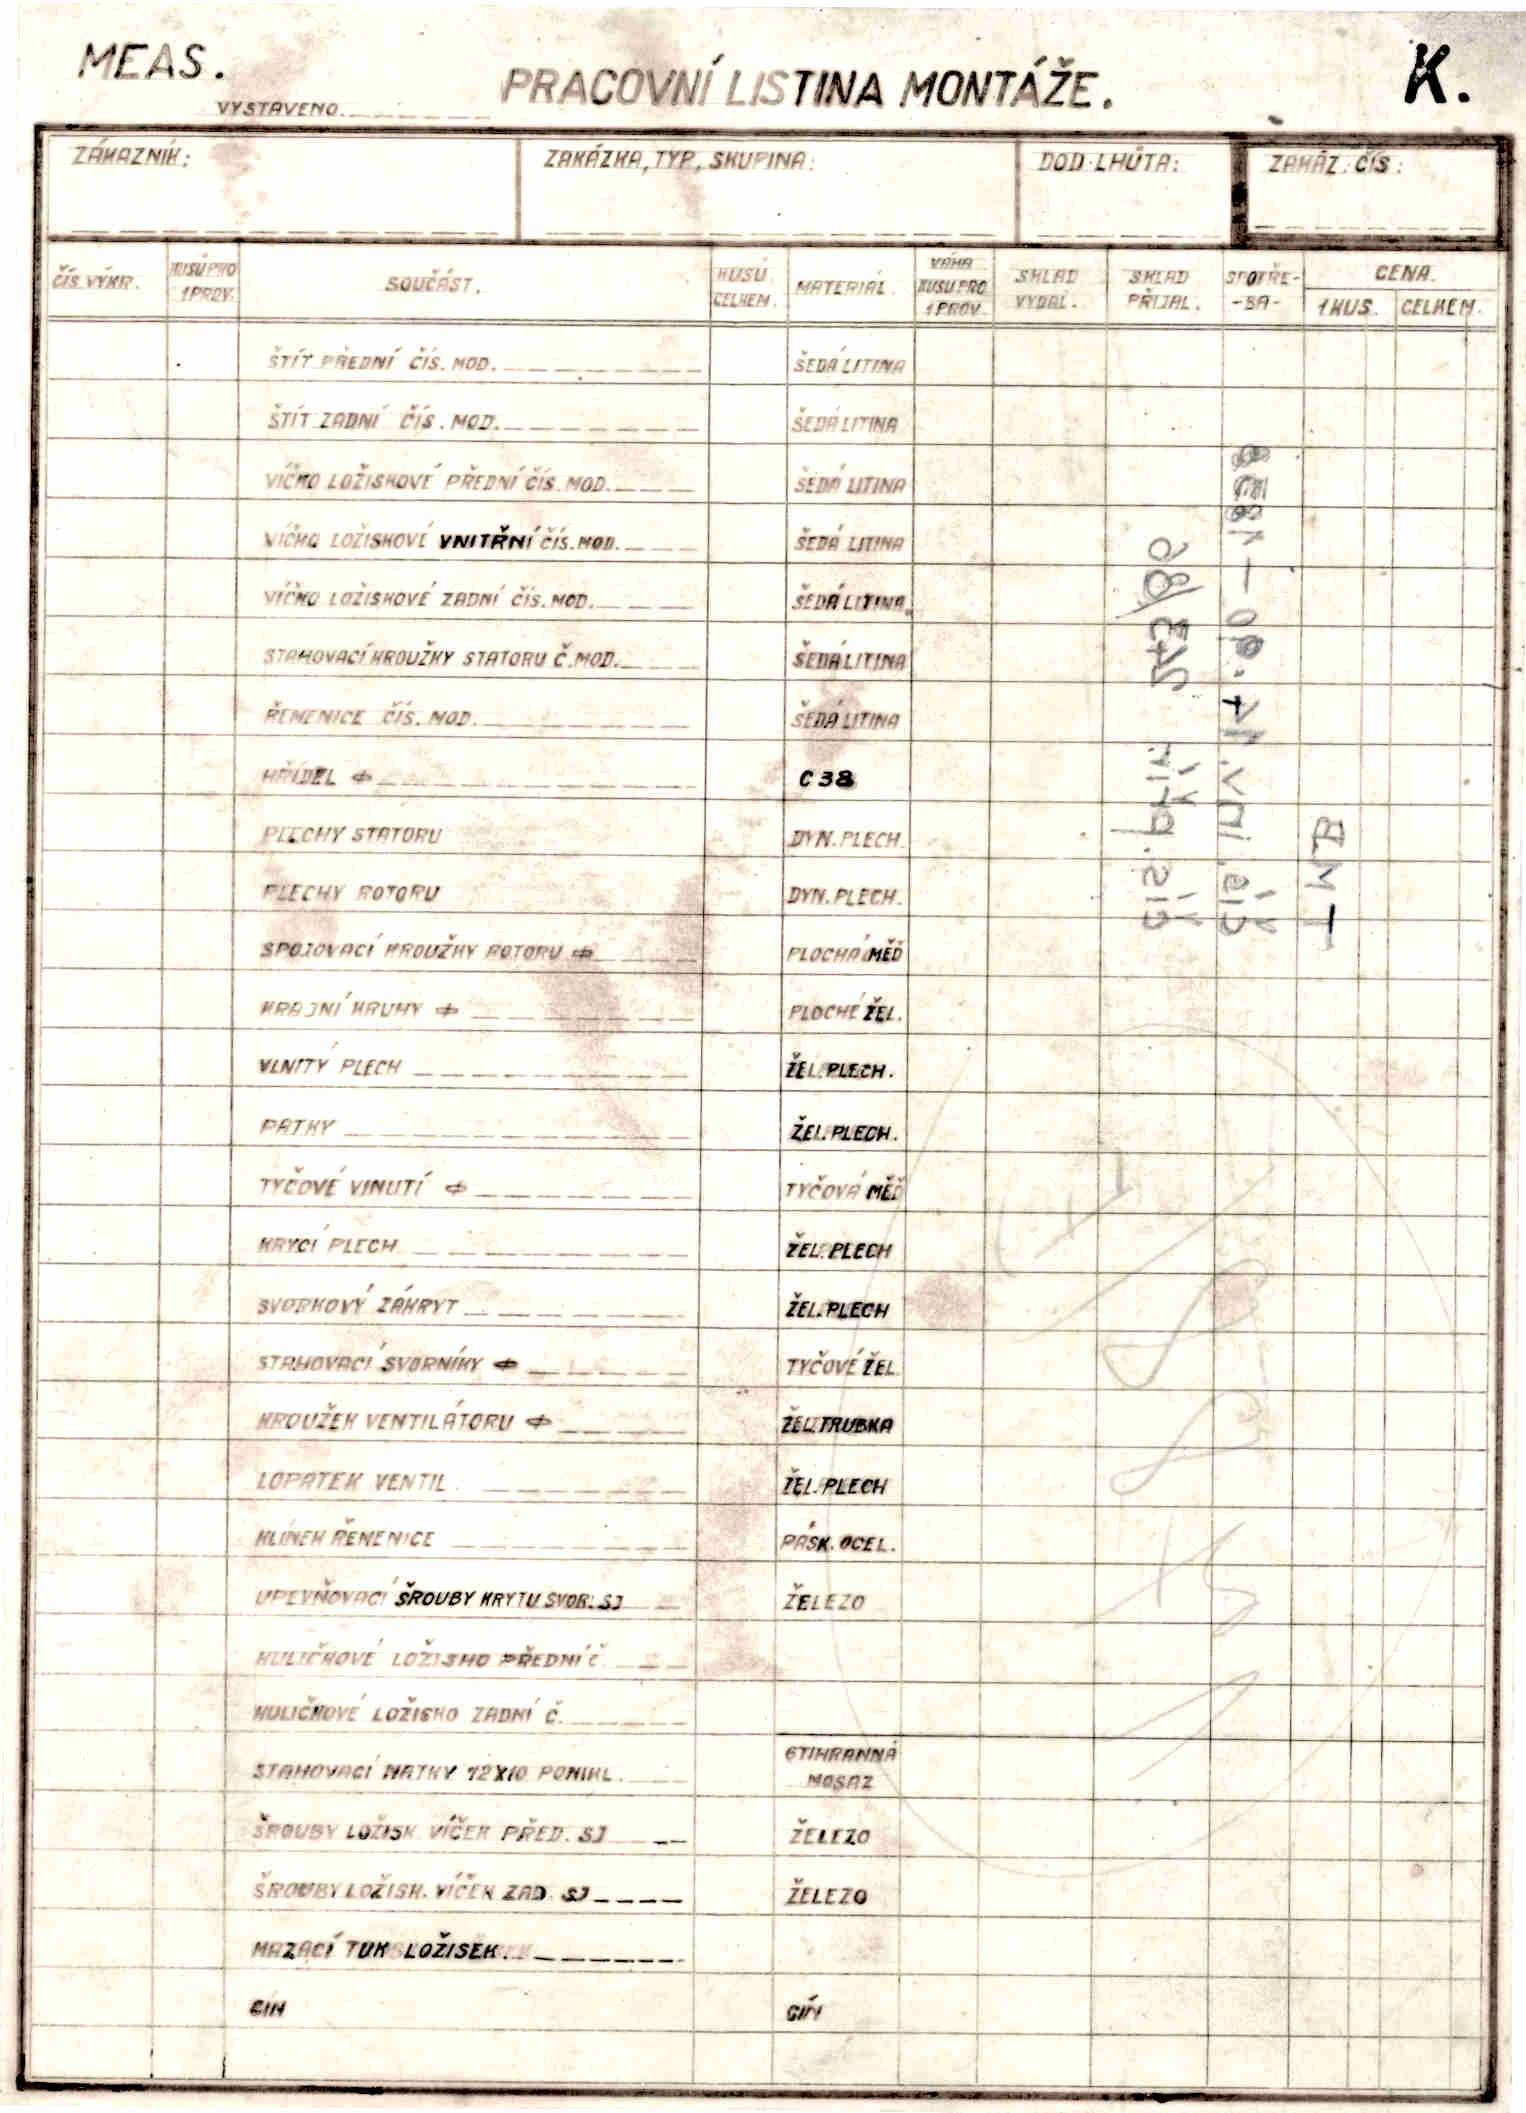 MEAS.
PRACOVNÍ LISTINA MONTÁŽE.
K.
VYSTAVENO.
ZÁKAZNÍK:
ZAKÁZKA, TYP, SKUPINA:
DOD. LHŮTA:
ZAKÁZ. ČÍS:
ČÍS. VÝKR.
KUSŮ PRO 1 PROV.
SOUČÁST.
KUSŮ CELKEM.
MATERIÁL.
VÁHA KUSU PRO 1 PROV.
SKLAD VYDAL.
SKLAD PŘIJAL.
SPOTŘE- -BA-
CENA.
1 KUS.
CELKEM.
ŠTÍT PŘEDNÍ ČÍS. MOD. ŠEDÁ LITINA
ŠTÍT ZADNÍ ČÍS. MOD. ŠEDÁ LITINA
VÍČKO LOŽISKOVÉ PŘEDNÍ ČÍS. MOD. ŠEDÁ LITINA
VÍČKO LOŽISKOVÉ VNITŘNÍ ČÍS. MOD. ŠEDÁ LITINA
VÍČKO LOŽISKOVÉ ZADNÍ ČÍS. MOD. ŠEDÁ LITINA
STAHOVACÍ KROUŽKY STATORU Č. MOD. ŠEDÁ LITINA
ŘEMENICE ČÍS. MOD. ŠEDÁ LITINA
HŘÍDEL ⌀ C 38
PLECHY STATORU DYN. PLECH.
PLECHY ROTORU DYN. PLECH.
SPOJOVACÍ KROUŽKY ROTORU ⌀ PLOCHÁ MĚĎ
KRAJNÍ KRUHY ⌀ PLOCHÉ ŽEL.
VLNITÝ PLECH ŽEL. PLECH.
PATKY ŽEL. PLECH.
TYČOVÉ VINUTÍ ⌀ TYČOVÁ MĚĎ
KRYCÍ PLECH ŽEL. PLECH
SVORKOVÝ ZÁKRYT ŽEL. PLECH
STAHOVACÍ SVORNÍKY ⌀ TYČOVÉ ŽEL.
KROUŽEK VENTILÁTORU ⌀ ŽEL. TRUBKA
LOPATEK VENTIL. ŽEL. PLECH
KLÍNEK ŘEMENICE PÁSK. OCEL.
UPEVŇOVACÍ ŠROUBY KRYTU SVOR. SJ ŽELEZO
KULIČKOVÉ LOŽISKO PŘEDNÍ Č.
KULIČKOVÉ LOŽISKO ZADNÍ Č.
STAHOVACÍ MATKY 12X10 PONIKL. 6TIHRANNÁ MOSAZ
ŠROUBY LOŽISK. VÍČEK PŘED. SJ ŽELEZO
ŠROUBY LOŽISK. VÍČEK ZAD. SJ ŽELEZO
MAZACÍ TUK LOŽISEK.
CÍN CÍN